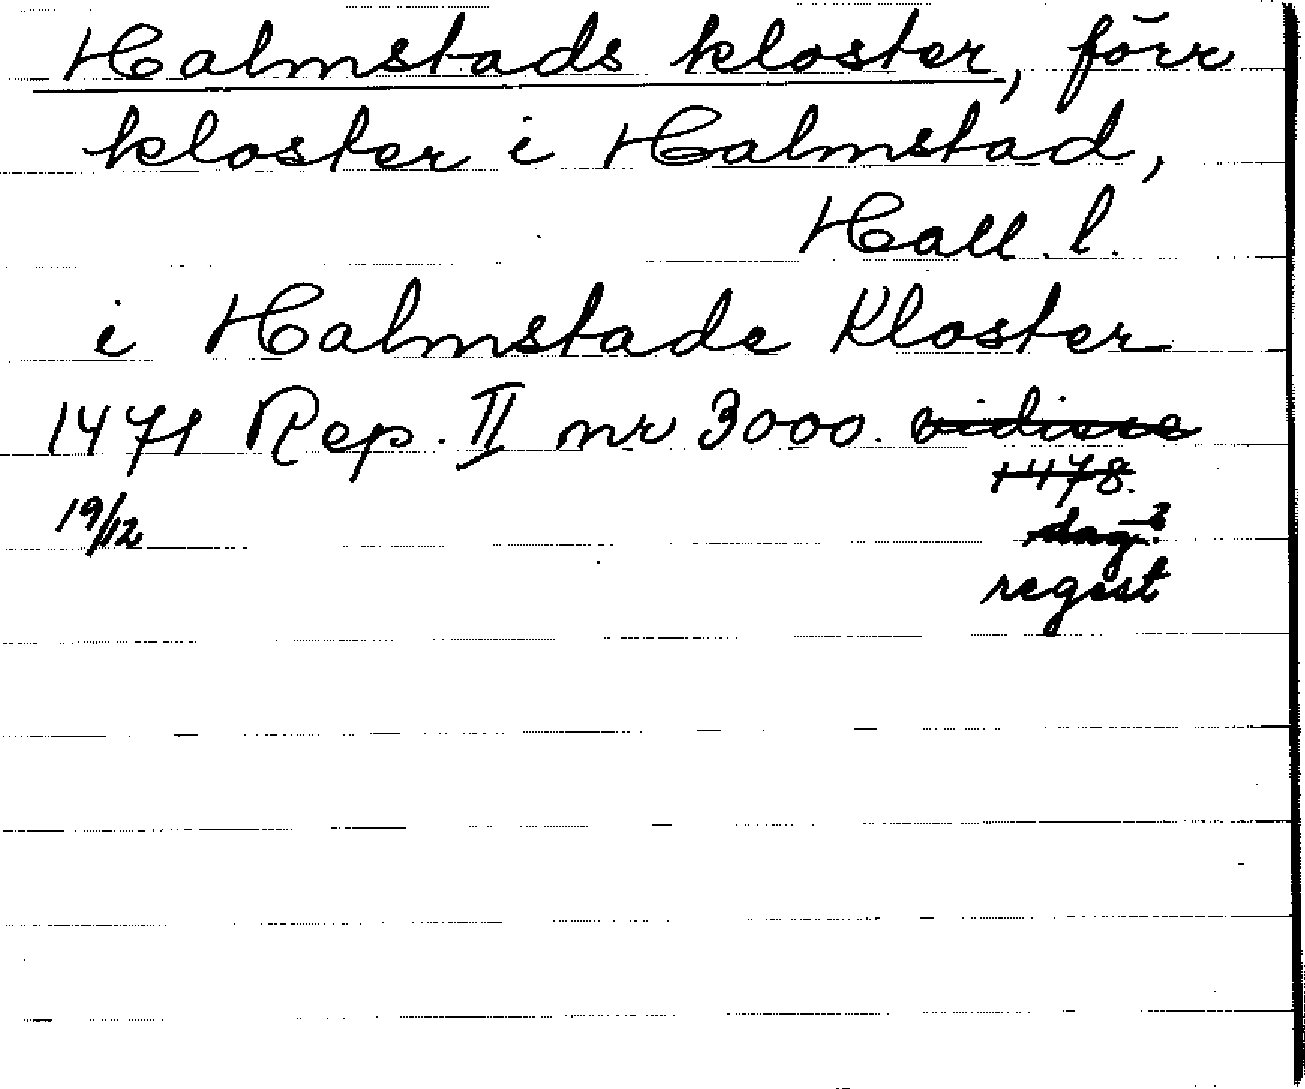 Halmstads kloster, förr
kloster i Halmstad,
Hall. l.
i Halmstade Kloster
1471 Rep. II nr 3000. vidisse
1478.
19/12
dag?
regest